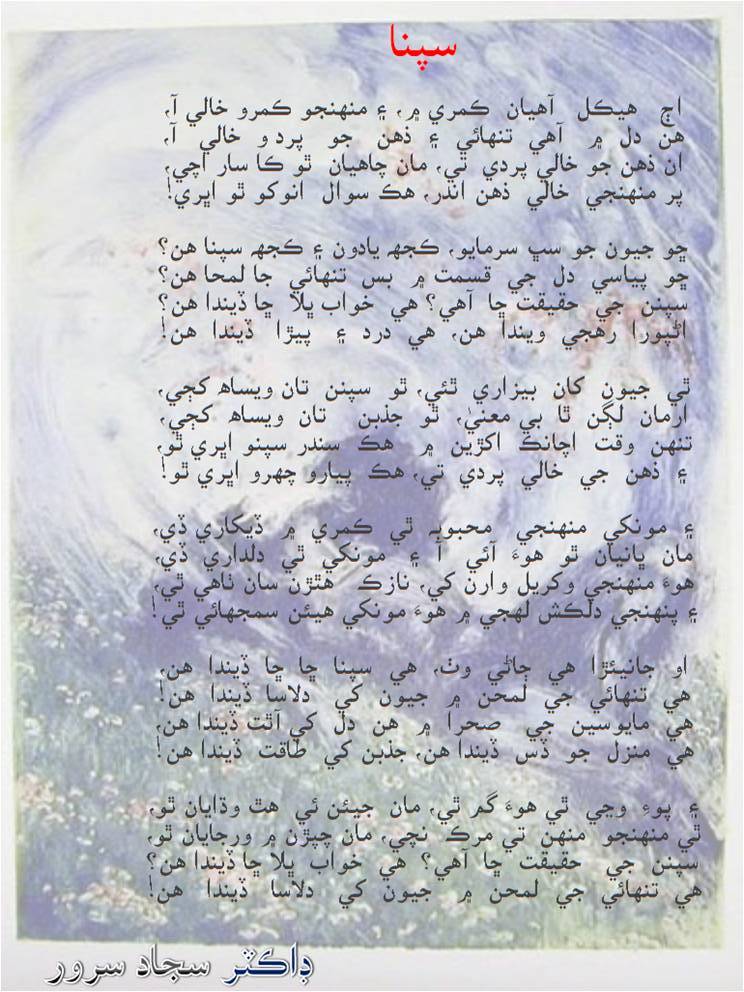 سپنا
اڄ هيڪل آهيان ڪمري ۾، ۽ منهنجو ڪمرو خالي آ،
هن دل ۾ آهي تنهائي ۽ ذهن جو پردو خالي آ،
ان ذهن جو خالي پردي تي، مان چاهيان ٿو ڪا سار اچي،
پر منهنجي خالي ذهن اندر، هڪ سوال انوکو ٿو اڀري!
ڇو جيون جو سڀ سرمايو، ڪجهه يادون ۽ ڪجهه سپنا هن؟
ڇو پياسي دل جي قسمت ۾ بس تنهائي جا لمحا هن؟
سپنن جي حقيقت ڇا آهي؟ هي خواب ڀلا ڇا ڏيندا هن؟
اڻپورا رهجي ويندا هن، هي درد ۽ پيڙا ڏيندا هن!
ٿي جيون کان بيزاري ٿئي، ٿو سپنن تان ويساھ کڄي،
ارمان لڳن ٿا بي معنيٰ، ٿو جذبن تان ويساھ کڄي،
تنهن وقت اچانڪ اکڙين ۾ هڪ سندر سپنو اڀري ٿو،
۽ ذهن جي خالي پردي تي، هڪ پيارو چهرو اڀري ٿو!
۽ مونکي منهنجي محبوبه ٿي ڪمري ۾ ڏيکاري ڏي،
مان ڀانيان ٿو هوءَ آئي آ ۽ مونکي ٿي دلداري ڏي،
هوءَ منهنجي وکريل وارن کي، نازڪ هٿڙن سان ٺاهي ٿي،
۽ پنهنجي دلڪش لهجي ۾ هوءَ مونکي هيئن سمجهائي ٿي!
او جانيئڙا هي ڄاڻي وٺ، هي سپنا ڇا ڇا ڏيندا هن،
هي تنهائي جي لمحن ۾ جيون کي دلاسا ڏيندا هن!
هي مايوسين جي صحرا ۾ هن دل کي آٿت ڏيندا هن،
هي منزل جو ڏس ڏيندا هن، جذبن کي طاقت ڏيندا هن!
۽ پوءِ وڃي ٿي هوءَ گم ٿي، مان جيئن ئي هٿ وڌايان ٿو،
ٿي منهنجو منهن تي مرڪ نچي، مان چپڙن ۾ ورجايان ٿو،
سپنن جي حقيقت ڇا آهي؟ هي خواب ڀلا ڇا ڏيندا هن؟
هي تنهائي جي لمحن ۾ جيون کي دلاسا ڏيندا هن!
ڊاڪٽر سجاد سرور